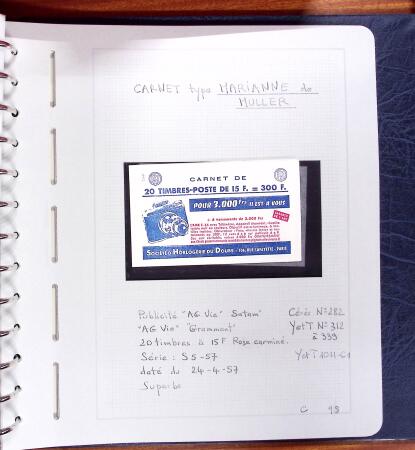 CARNET type MARIANNE de
MULLER
CARNET DE
20 TIMBRES-POSTE DE 15 F. = 300 F.
POUR 3.000 Frs IL EST A VOUS
SOCIÉTÉ HORLOGERIE DU DOUBS - 106, RUE LAFAYETTE - PARIS
Publicité "AG Vie" Satam"
"AG Vie" "Grammont"
20 timbres à 15 F Rose carminé.
Série : S5-57
daté du 24-4-57
Superbe
Cérès N° 282
Y et T N° 312
à 339
Y et T 1011-C1
C 98